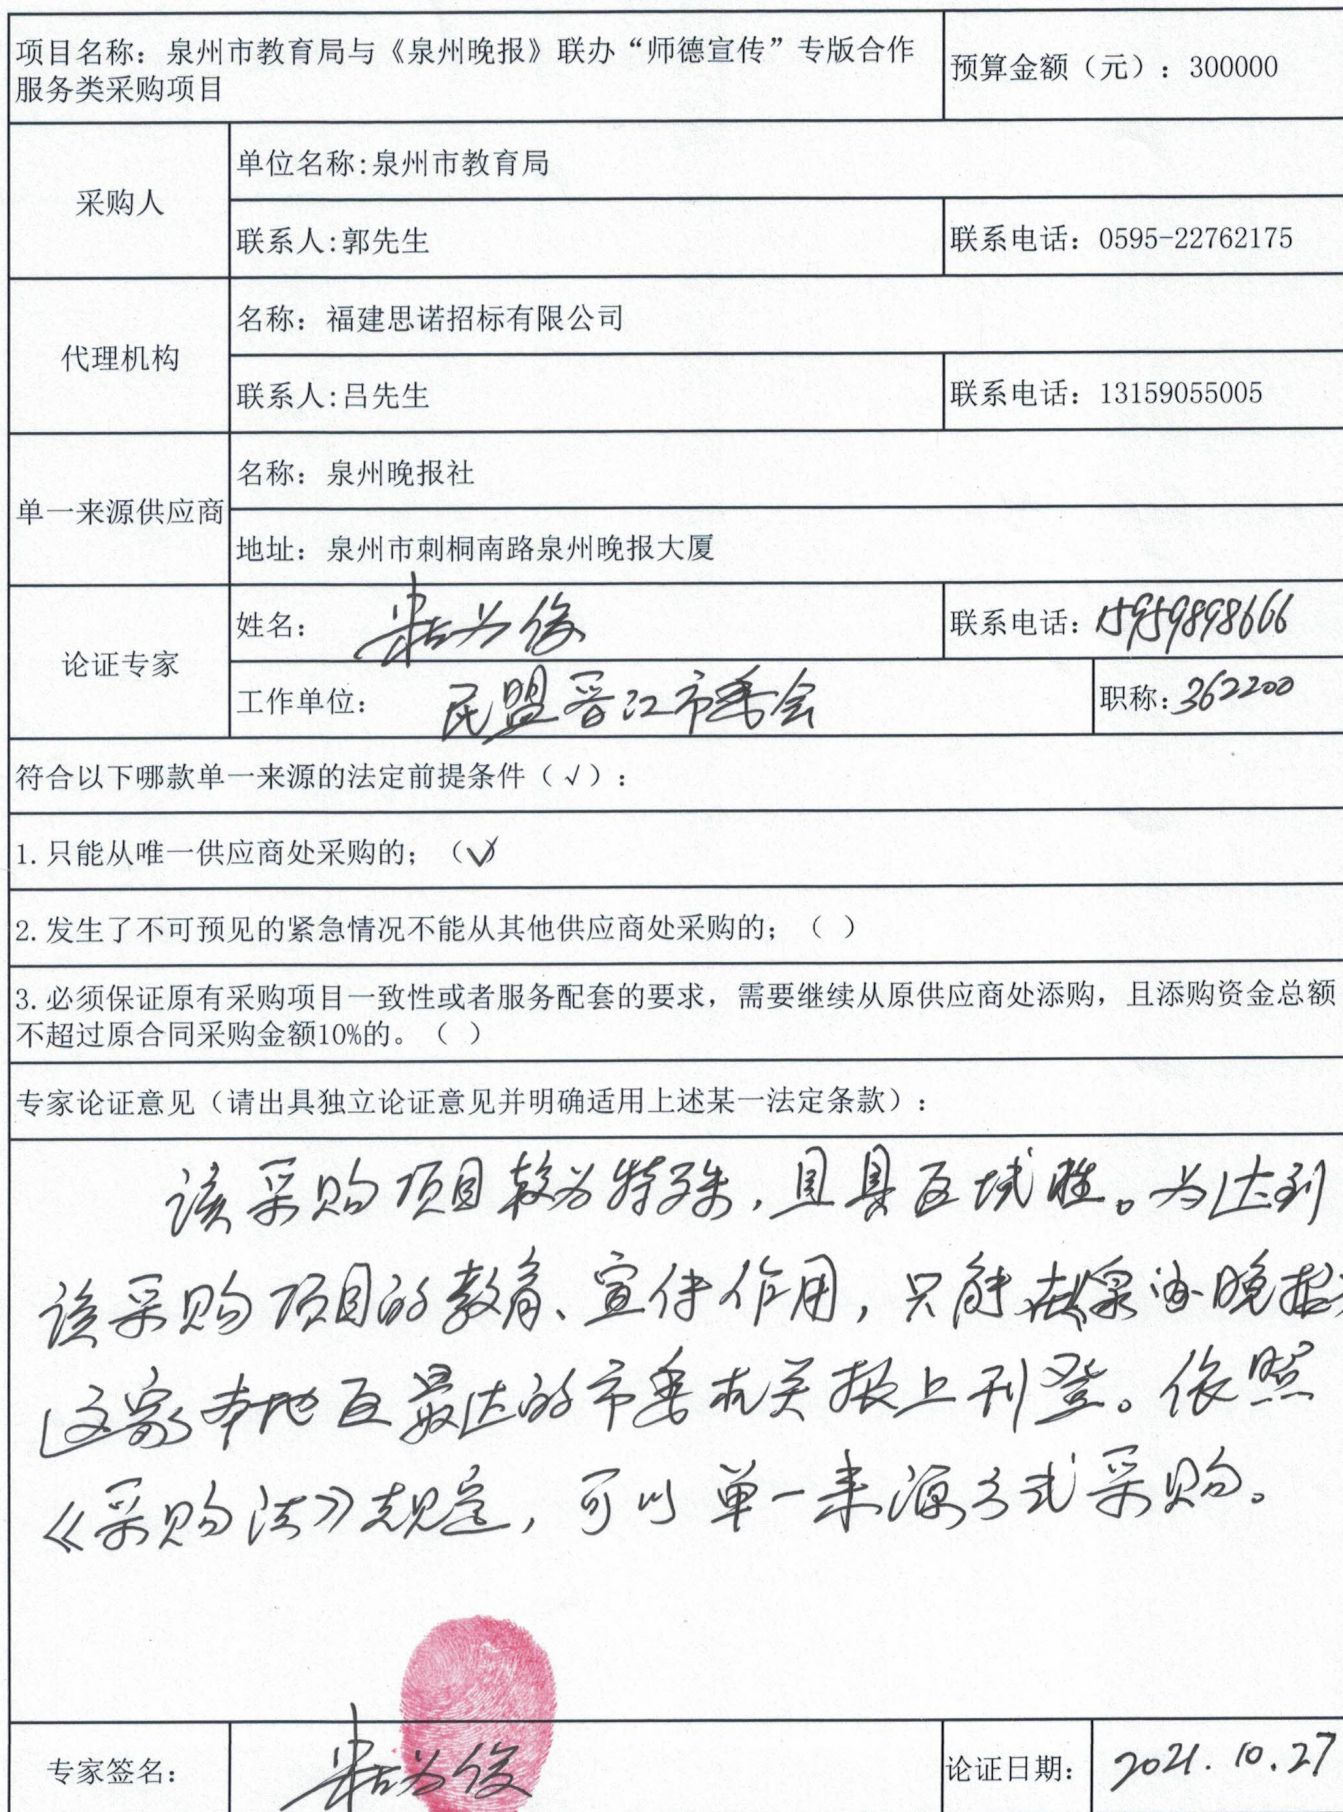 项目名称：泉州市教育局与《泉州晚报》联办“师德宣传”专版合作
服务类采购项目
预算金额（元）：300000
采购人
单位名称:泉州市教育局
联系人:郭先生
联系电话：0595-22762175
代理机构
名称：福建思诺招标有限公司
联系人:吕先生
联系电话：13159055005
单一来源供应商
名称：泉州晚报社
地址：泉州市刺桐南路泉州晚报大厦
论证专家
姓名：
联系电话：15959898666
工作单位：民盟晋江市委会
职称：362200
符合以下哪款单一来源的法定前提条件（√）：
1.只能从唯一供应商处采购的；（√）
2.发生了不可预见的紧急情况不能从其他供应商处采购的；（ ）
3.必须保证原有采购项目一致性或者服务配套的要求，需要继续从原供应商处添购，且添购资金总额
不超过原合同采购金额10%的。（ ）
专家论证意见（请出具独立论证意见并明确适用上述某一法定条款）：
该采购项目较为特殊，且具区域性。为达到
该采购项目的教育、宣传作用，只能在泉州晚报
这家本地区最大的市委机关报上刊登。依照
《采购法》规定，可以单一来源方式采购。
专家签名：
论证日期：2021.10.27